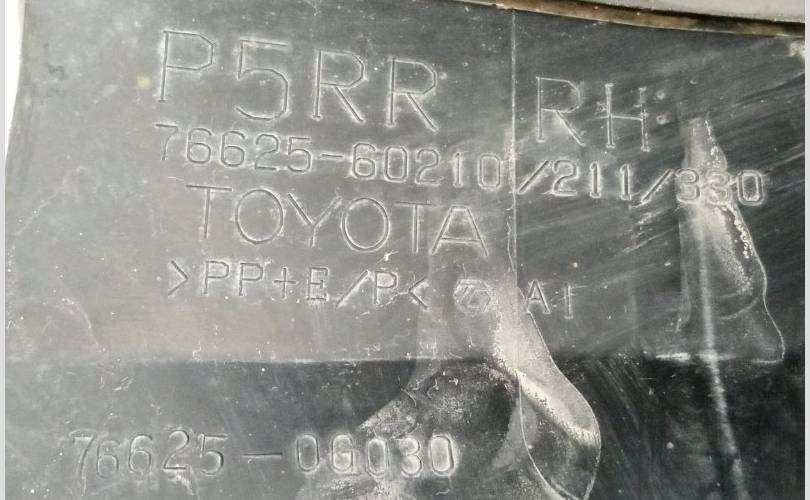 P5RR RH
76625-60210/211/330
TOYOTA
>PP+E/P< A1
76625-0G030